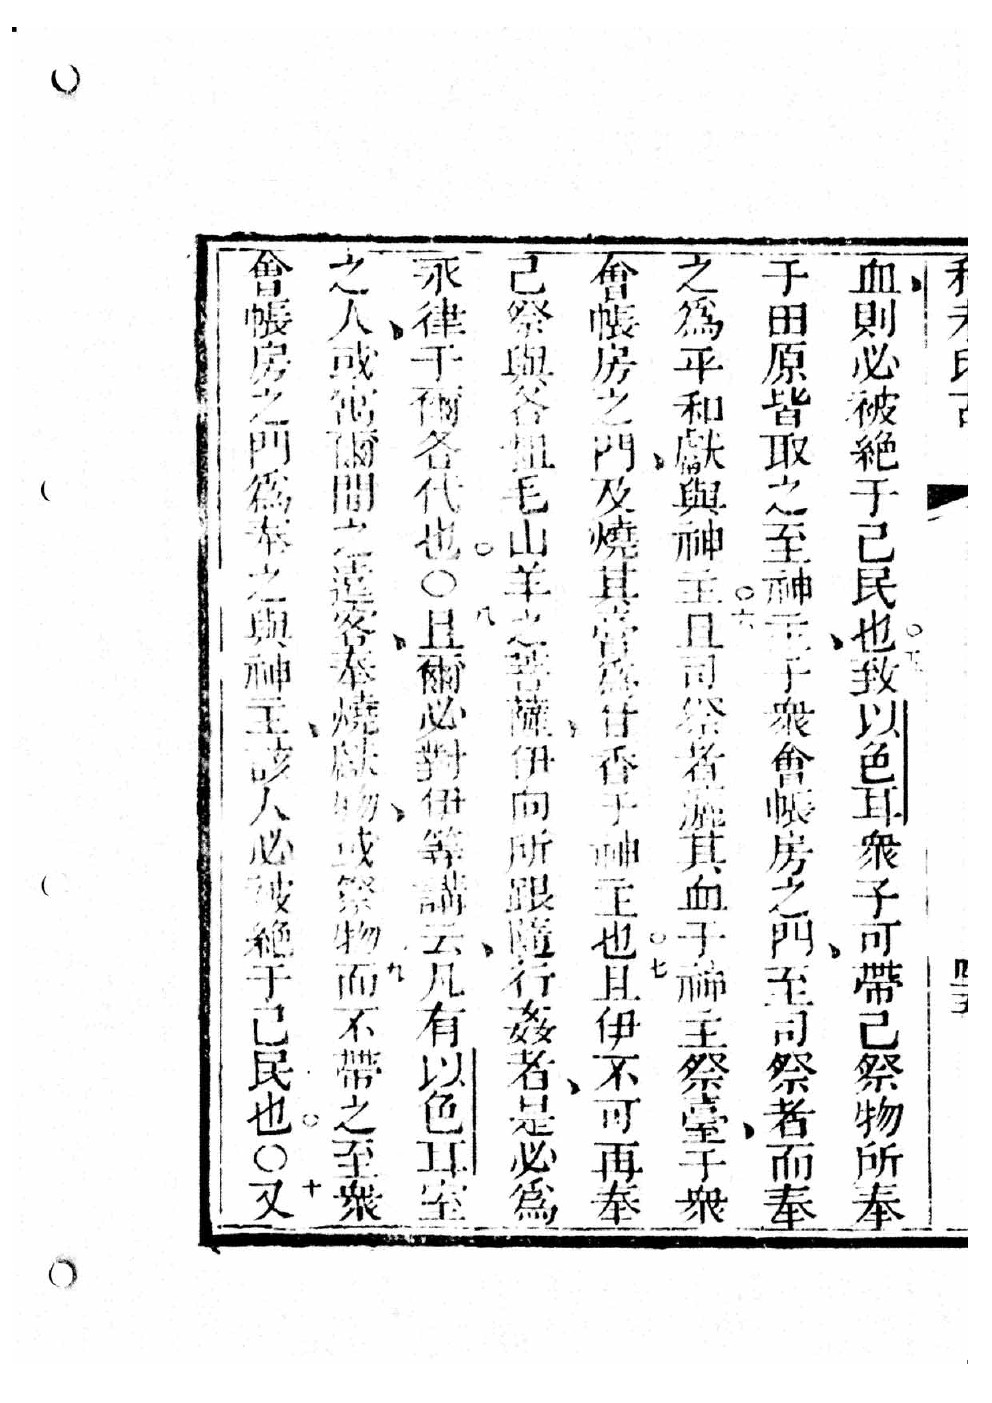 血、則必被絕于己民也○五致以色耳衆子可帶己祭物所奉
于田原皆取之至神主、于衆會帳房之門、至司祭者而奉
之爲平和獻與神主○六且司祭者灑其血于神主祭臺、于衆
會帳房之門、及燒其膏爲甘香于神主也○七且伊不可再奉
己祭與各粗毛山羊之菩薩、伊向所跟隨行姦者、是必爲
永律于爾各代也○八○且爾必對伊等講云、凡有以色耳室
之人、或寓爾間之遠客、奉燒獻物、或祭物九而不帶之至衆
會帳房之門爲奉之與神主、該人必被絕于己民也○十○又